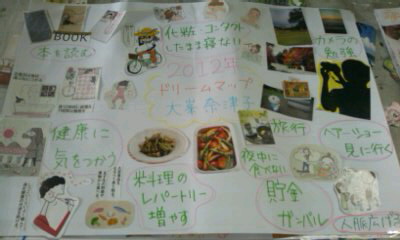 BOOK
本を読む
化粧・コンタクト
したまま寝ない
カメラの
勉強
2012年
ドリームマップ
健康に
気をつかう
料理の
レパートリー
増やす
旅行
夜中に
食べない
ヘアーショー
見に行く
貯金
ガンバル
人脈広げる